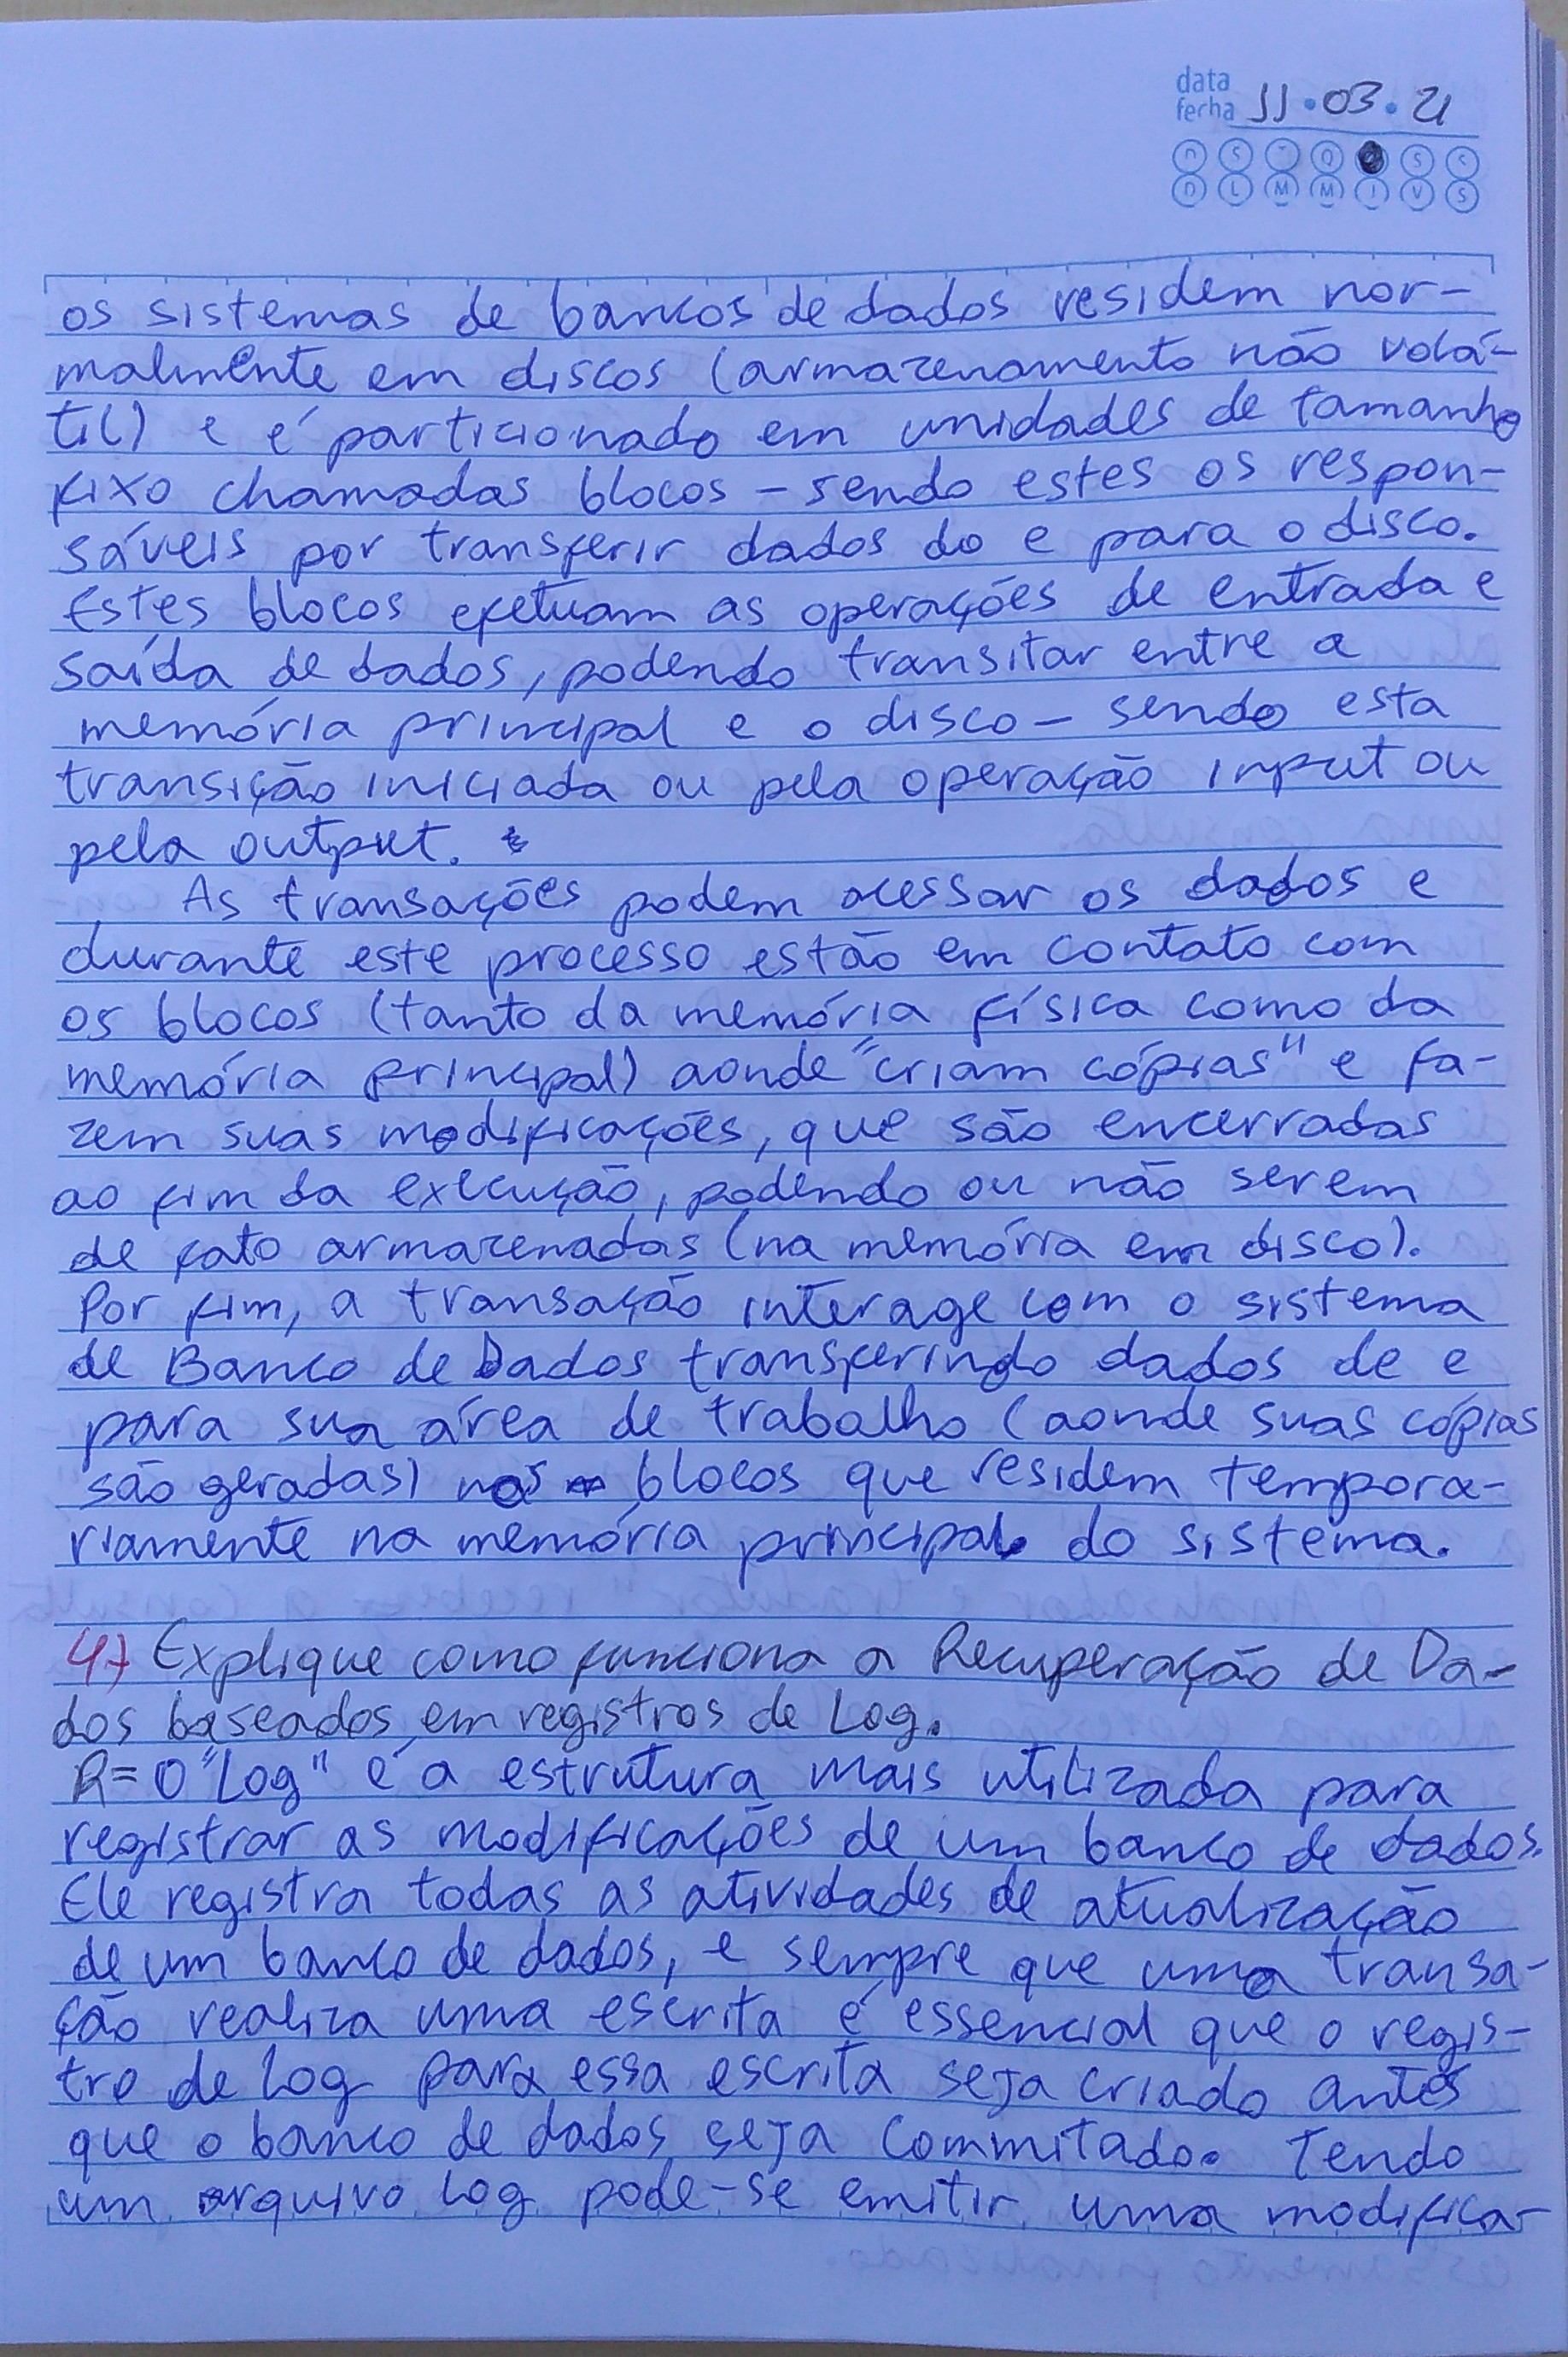 data
fecha 11.03.21
D S T Q Q S S
D L M M J V S
os sistemas de bancos de dados residem nor-
malmente em discos (armazenamento não volá-
til) e é particionado em unidades de tamanho
fixo chamadas blocos - sendo estes os respon-
sáveis por transferir dados do e para o disco.
Estes blocos efetuam as operações de entrada e
saída de dados, podendo transitar entre a
memória principal e o disco - sendo esta
transição iniciada ou pela operação input ou
pela output.
As transações podem acessar os dados e
durante este processo estão em contato com
os blocos (tanto da memória física como da
memória principal) aonde "criam cópias" e fa-
zem suas modificações, que são encerradas
ao fim da execução, podendo ou não serem
de fato armazenadas (na memória em disco).
Por fim, a transação interage com o sistema
de Banco de Dados transferindo dados de e
para sua área de trabalho (aonde suas cópias
são geradas) nos blocos que residem tempora-
riamente na memória principal do sistema.
4) Explique como funciona a Recuperação de Da-
dos baseados em registros de Log.
R= O "Log" é a estrutura mais utilizada para
registrar as modificações de um banco de dados.
Ele registra todas as atividades de atualização
de um banco de dados, e sempre que uma transa-
ção realiza uma escrita é essencial que o regis-
tro de log para essa escrita seja criado antes
que o banco de dados seja commitado. Tendo
um arquivo log pode-se emitir uma modifica-